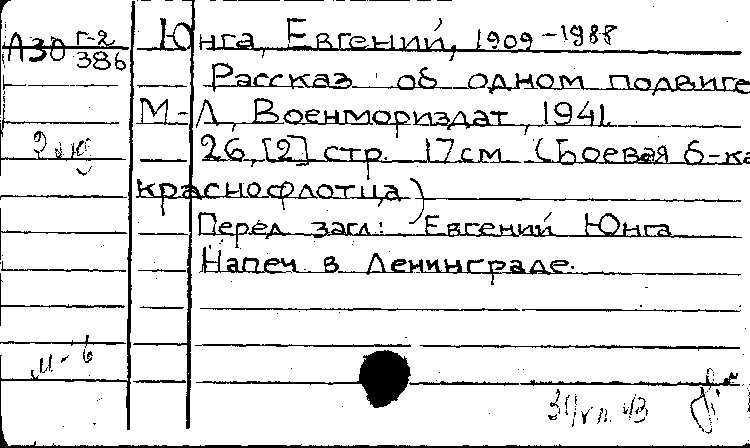 Л30 Г-2
386
Юнга, Евгений, 1909-1988
Рассказ об одном подвиге
М-Л, Военмориздат, 1941.
26, [2] стр. 17см (Боевая б-ка
краснофлотца)
Перед загл: Евгений Юнга
Напеч в Ленинграде.
М-6